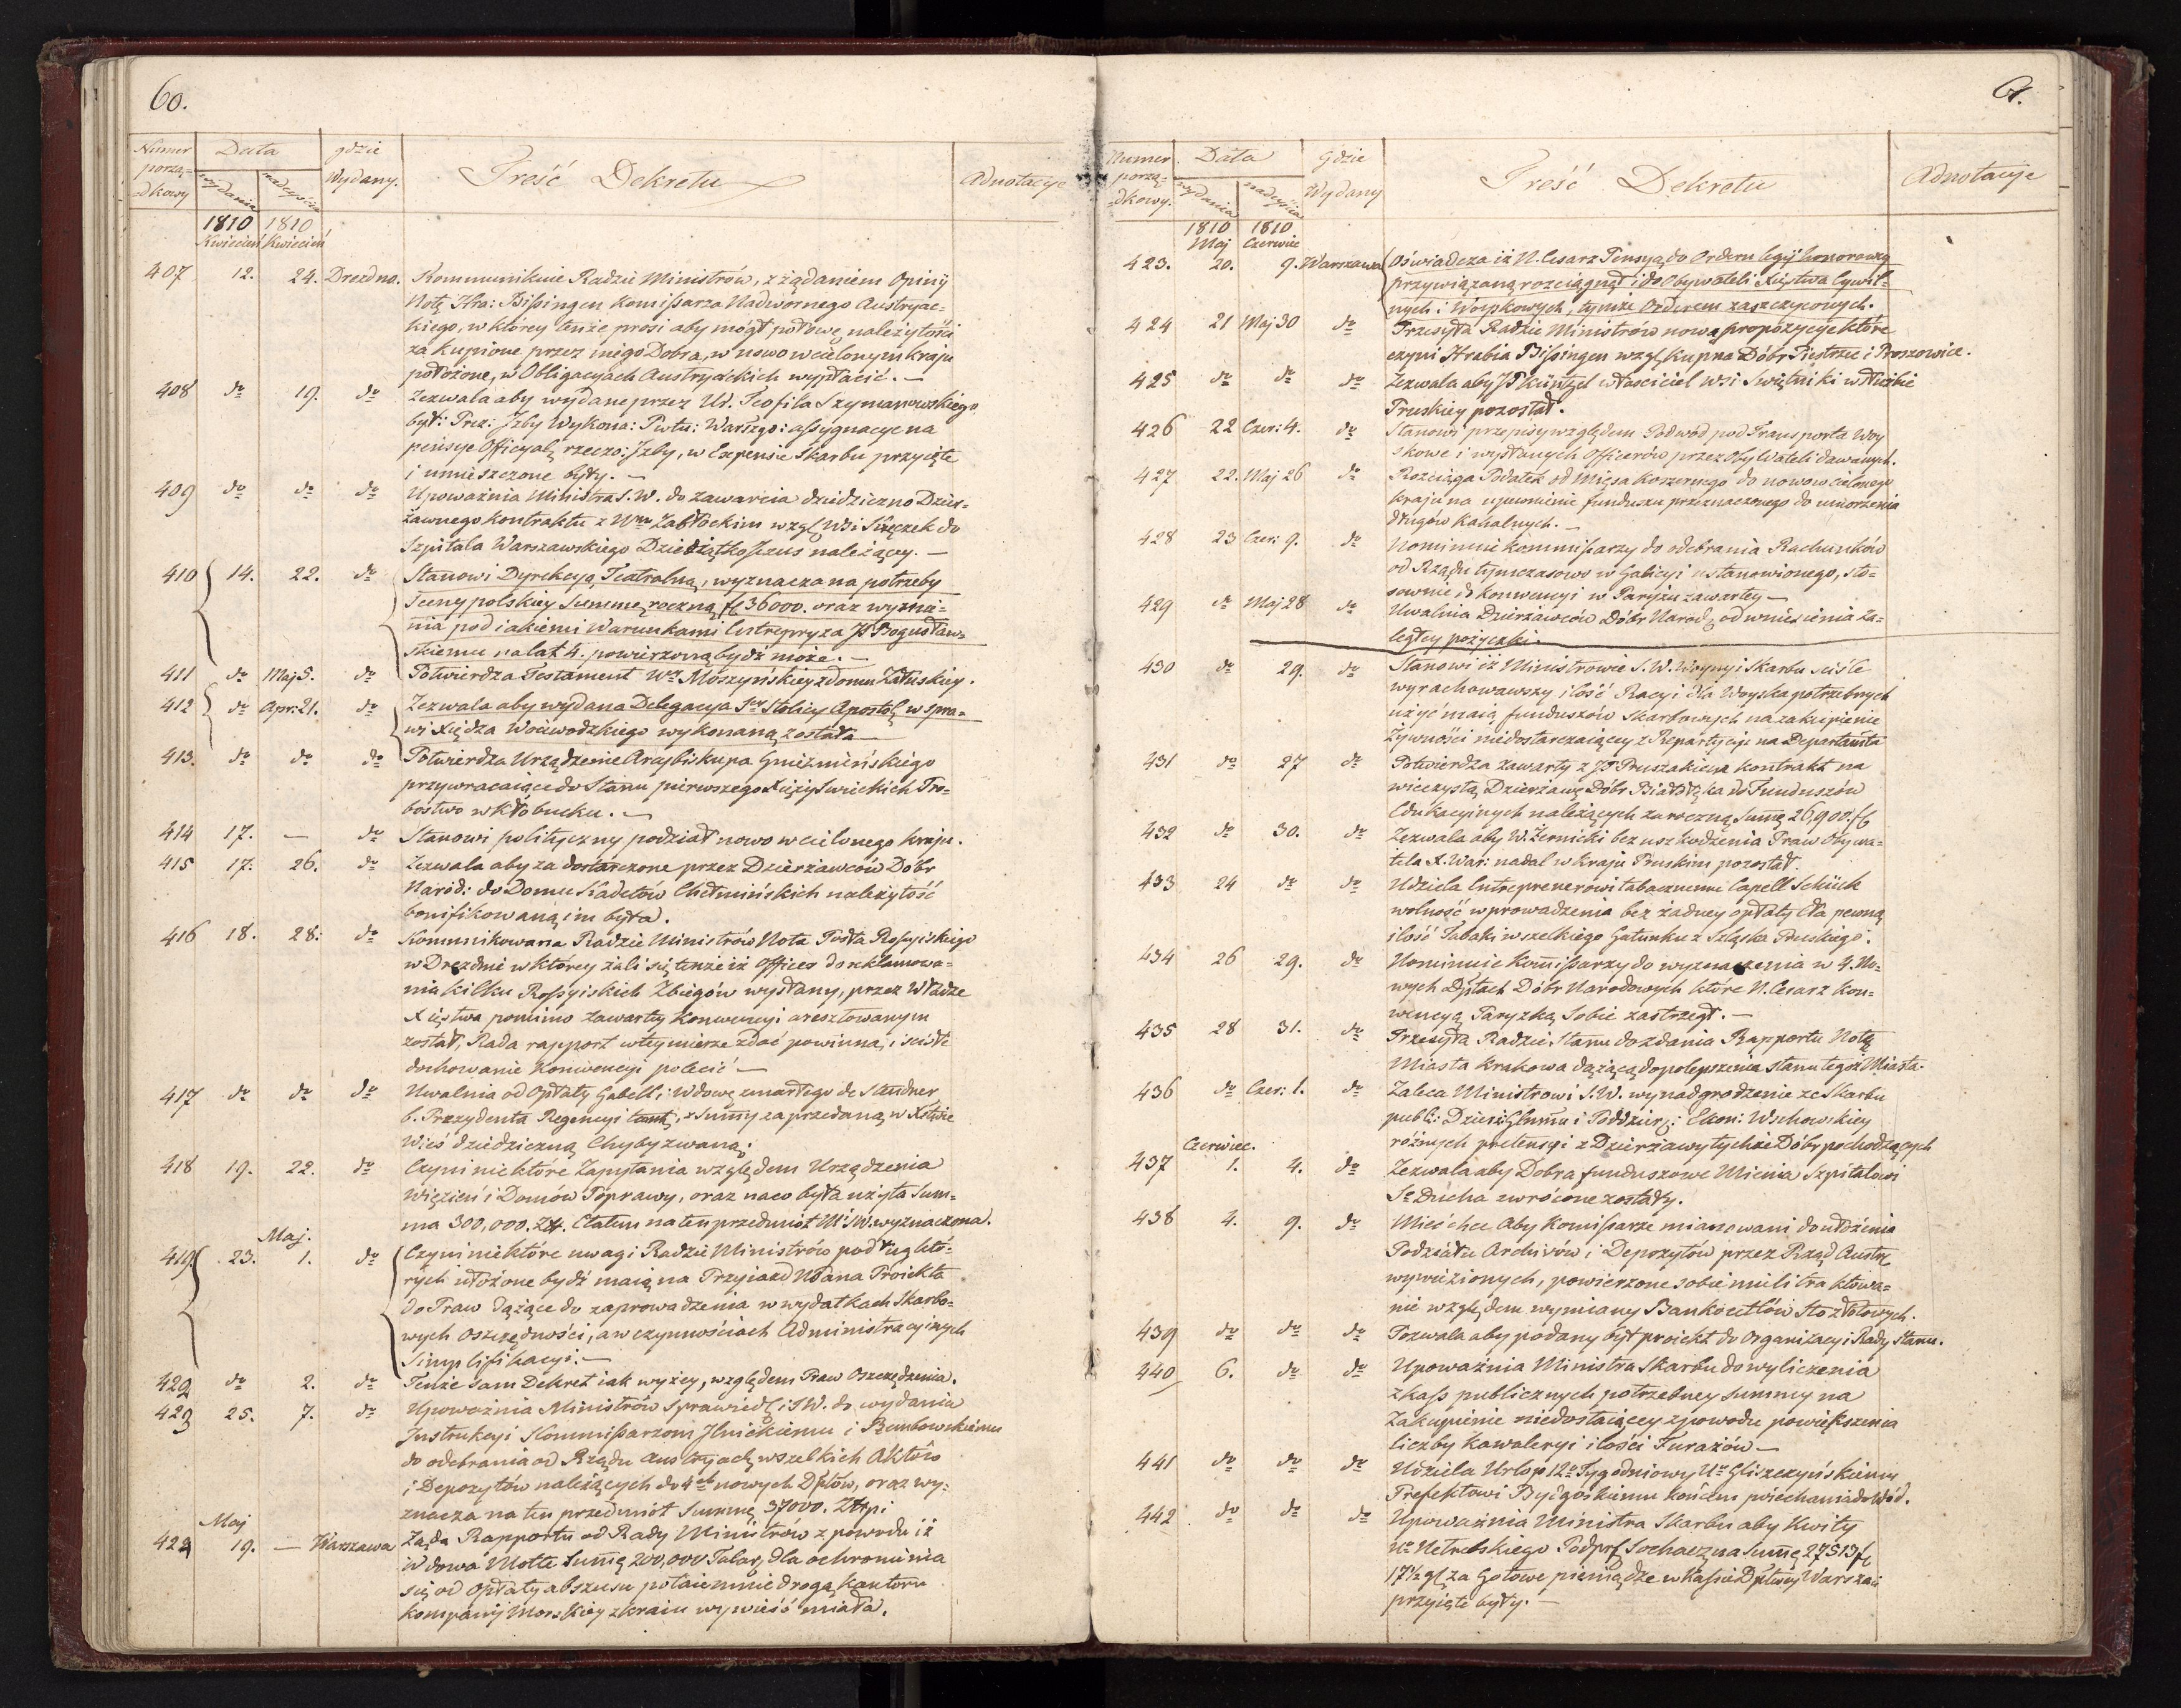 60.
Numer porzą=dkowy | Data wydania | nadeyścia | gdzie Wydany. | Treść Dekretu | Adnotacye
1810 1810
Kwiecień Kwiecień
407 12. 24. Drezdno. Kommunikuie Radzie Ministrów, z żądaniem Opinij
Notę Hra: Bißingen Komißarza Nadwornego Austryac=
kiego, w którey tenże prosi aby mógł połowę należytości
za kupione przez niego Dobra, w nowo wcielonym kraju
położone, w Obligacyach Austryackich wypłacić. —
408 do 19. do Zezwala aby wydane przez Ur. Teofila Szymanowskiego
był: Prez: Izby Wykona: Pwtu: Warszgo: assygnacye na
pensye Officyal: rzeczo: Izby, w Expensie Skarbu przyięte
i umieszczone były. —
409 do do do Upoważnia Ministra S. W. do zawarcia dziedziczno Dzier=
żawnego Kontraktu z Wm Zabłockim wzgl: Wsi Szczęczek do
Szpitala Warszawskiego Dzieciątko Jezus należącey. —
410 14. 22. do Stanowi Dyrekcyą Teatralną, wyznacza na potrzeby
Sceny polskiey Summę roczną fl 36000. oraz wyzna=
nia pod iakiemi Warunkami Entrepryza JP Bogusław=
skiemu na lat 4. powierzoną bydź może. —
411 do Maj 5. do Potwierdza Testament Wey Moszyńskiey z domu Załuskiey.
412 do Apr: 21. do Zezwala aby wydana Delegacya Sey Stolicy Apostol: w spra=
wi Xiędza Woiewodzkiego wykonaną została —
413. do do do Potwierdza Urządzenie Arcybiskupa Gnieźnieńskiego
przywracaiące do Stanu pierwszego Xięży Swieckich Pro=
bostwo w Kłobucku. —
414 17. — do Stanowi polityczny podział nowo wcielonego kraju.
415 17. 26. do Zezwala aby za dostarczone przez Dzierżawców Dóbr
Narod: do Domu Kadetów Chełmińskich należytość
bonifikowaną im była.
416 18. 28: do Kommunikowana Radzie Ministrów Nota Posła Rossyiskiego
w Drezdnie w którey żali się tenże iż Officer do reklamowa=
nia kilku Rossyiskich Zbiegów wysłany, przez Władze
Xięstwa pomimo zawartey Konwencyi aresztowanym
został, Rada rapport w tey mierze zdać powinna, i ściśłe
dochowanie Konwencyi polecić —
417 do do do Uwalnia od Opłaty Gabell: Wdowę zmarłego de Standner
b. Prezydenta Regencyi tamt:, z Summy za przedaną w Xstwie
Wieś dziedziczną Chyby zwaną.
418 19. 22. do Czyni niektóre Zapytania względem Urządzenia
Więzień i Domów Poprawy, oraz na co była użyta Sum=
ma 300,000. Zł. Etatem na ten przedmiot M. S. W. wyznaczona.
Maj.
419 23. 1. do Czyni niektóre uwagi Radzie Ministrów podług któ=
rych ułożone bydź maią na Przyiazd NPana Proiekta
do Praw dążące do zaprowadzenia w wydatkach Skarbo=
wych oszczędności, a w czynnościach Administracyinych
Simplifikacyi. —
420 do 2. do Tenże sam Dekret iak wyżey, względem Praw Oszczędzenia.
423 25. 7. do Upoważnia Ministrów Sprawiedl: i S W. do wydania
Instrukcyi Kommißarzom Ilnickiemu i Rembowskiemu
do odebrania od Rządu Austryack: wszelkich Aktów
i Depozytów należących do 4ch nowych Dptów, oraz wy=
znacza na ten przedmiot Summę 37000. Złtpi
Maj
422 19. — Warszawa Żąda Rapportu od Rady Ministrów z powodu iż
Wdowa Motte Summę 200,000 Talar: dla ochronienia
się od Opłaty abszusu potaiemnie drogą Kantoru
kompanij Morskiey z kraiu wywieść miała.
61.
Numer porzą=dkowy. | Data wydania | nadeyścia | Gdzie Wydany | Treść Dekretu | Adnotacye
1810 1810
Maj Czerwiec
423. 20. 9. Warszawa Oświadcza iż N. Cesarz Pensyą do Orderu legij honorowey
przywiązaną rozciągnął i do Obywateli Xięstwa Cywil=
nych i Woyskowych, tymże Orderem zaszczyconych.
424 21 Maj 30 do Przesyła Radzie Ministrów nową propozycyę które
czyni Hrabia Bißingen wzgl: kupna Dóbr Piestrzec i Proszowice.
425 do do do Zezwala aby JP Küntzel właściciel wsi Swiętniki w służbie
Pruskiey pozostał.
426 22 Czer: 4. do Stanowi przepisy względem Podwód pod Transporta Woy
skowe i wysłanych Officerów przez Obywateli dawanych.
427 22. Maj 26 do Rozciąga Podatek od Mięsa Koszernego do nowo wcielonego
kraju na upewnienie funduszu przeznaczonego do umorzenia
długów Kahalnych. —
428 23 Czer: 9. do Nominuie Kommißarzy do odebrania Rachunków
od Rządu tymczasowo w Galicyi ustanowionego, sto=
sownie do Konwencyi w Paryżu zawartey —
429 do Maj 28 do Uwalnia Dzierżawców Dóbr Narod: od wniesienia za=
ległey pożyczki.
430 do 29. do Stanowi iż Ministrowie S. W. Woyny i Skarbu ściśle
wyrachowawszy ilość Racyi dla Woyska potrzebnych
użyć maią funduszów Skarbowych na zakupienie
Żywności niedostarczaiącey z Repartycyi na Departamta
431 do 27 do Potwierdza zawarty z JP Pruszakiem kontrakt na
wieczystą Dzierżawę Dóbr Białołęka do Funduszów
Edukacyinych należących za roczną Summę 26,900. fl
432 do 30. do Zezwala aby W. Żernicki bez uszkodzenia Praw Obywa=
tela X. War: nadal w kraju Pruskim pozostał.
433 24 do do Udziela Entreprenerowi tabacznemu Capell Schück
wolność wprowadzenia bez żadney opłaty Cła pewną
ilość Tabaki wszelkiego Gatunku z Szląska Pruskiego.
434 26 29. do Nominuie Komißarzy do wyznaczenia w 4. No=
wych Dptach Dóbr Narodowych które N. Cesarz Kon=
wencyą Paryzką Sobie zastrzegł. —
435 28 31. do Przesyła Radzie Stanu do zdania Rapportu Notę
Miasta Krakowa dążącą do polepszenia stanu tegoż Miasta.
436 do Czer: 1. do Zaleca Ministrowi S. W. wynadgrodzenie ze Skarbu
publ: Dzierż: Glemma i Poddzier: Ekon: Wschowskiey
różnych pretensyi z Dzierżawy tychże Dóbr pochodzących
Czerwiec.
437 1. 4. do Zezwala aby Dobra funduszowe Mienia Szpitalowi
So Ducha zwrócone zostały.
438 4. 9. do Mieć chce Aby Komißarze mianowani do ułożenia
Podziału Archivów i Depozytów przez Rząd Austr:
wywiezionych, powierzone sobie mieli traktowa=
nie względem wymiany Bankocetlów Stozłotowych.
439 do do do Pozwala aby podany był proiekt do Organizacyi Rady Stanu.
440 6. do do Upoważnia Ministra Skarbu do wyliczenia
z kass publicznych potrzebney Summy na
Zakupienie niedostaiącey z powodu powiększenia
liczby kawaleryi ilości Furażów —
441 do do do Udziela Urlop 12o Tygodniowy Ur Gliszczyńskiemu
Prefektowi Bydgoskiemu końcem poiechania do Wód.
442 do do do Upoważnia Ministra Skarbu aby Kwity
Ur Netrebskiego Podprf: Sochacz: na Summę 27513 fl
17½ gl: za Gotowe pieniądze w Kassie Dptowey Warszaw:
przyięte były. —